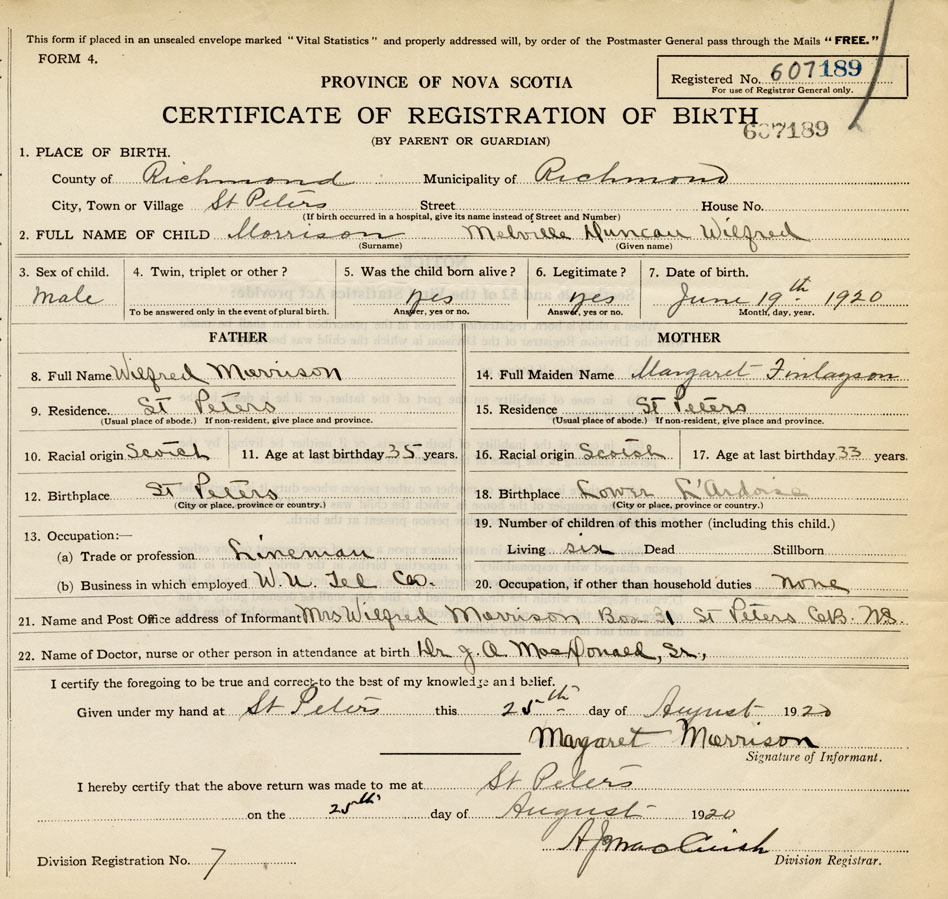 This form if placed in an unsealed envelope marked "Vital Statistics" and properly addressed will, by order of the Postmaster General pass through the Mails "FREE."
FORM 4.
Registered No. 607189
For use of Registrar General only.
PROVINCE OF NOVA SCOTIA
CERTIFICATE OF REGISTRATION OF BIRTH
607189
(BY PARENT OR GUARDIAN)
1. PLACE OF BIRTH.
County of Richmond Municipality of Richmond
City, Town or Village St Peters Street House No.
(If birth occurred in a hospital, give its name instead of Street and Number)
2. FULL NAME OF CHILD Morrison Melville Duncan Wilfred
(Surname) (Given name)
3. Sex of child. 4. Twin, triplet or other? 5. Was the child born alive? 6. Legitimate? 7. Date of birth.
Male yes yes June 19th 1920
To be answered only in the event of plural birth. Answer, yes or no. Answer, yes or no. Month, day, year.
FATHER MOTHER
8. Full Name Wilfred Morrison 14. Full Maiden Name Margaret Finlayson
9. Residence. St Peters 15. Residence St Peters
(Usual place of abode.) If non-resident, give place and province. (Usual place of abode.) If non-resident, give place and province.
10. Racial origin Scotch 11. Age at last birthday 35 years. 16. Racial origin Scotch 17. Age at last birthday 33 years.
12. Birthplace St Peters 18. Birthplace Lower L'Ardoise
(City or place, province or country.) (City or place, province or country.)
13. Occupation:— 19. Number of children of this mother (including this child.)
(a) Trade or profession Lineman Living six Dead Stillborn
(b) Business in which employed W. U. Tel Co. 20. Occupation, if other than household duties none
21. Name and Post Office address of Informant Mrs Wilfred Morrison Box 31 St Peters C.B. N.S.
22. Name of Doctor, nurse or other person in attendance at birth Dr J. A. MacDonald, Sr.,
I certify the foregoing to be true and correct to the best of my knowledge and belief.
Given under my hand at St Peters this 25th day of August 1920
Margaret Morrison
Signature of Informant.
I hereby certify that the above return was made to me at St Peters
on the 25th day of August 1920
A J MacCuish
Division Registration No. 7 Division Registrar.